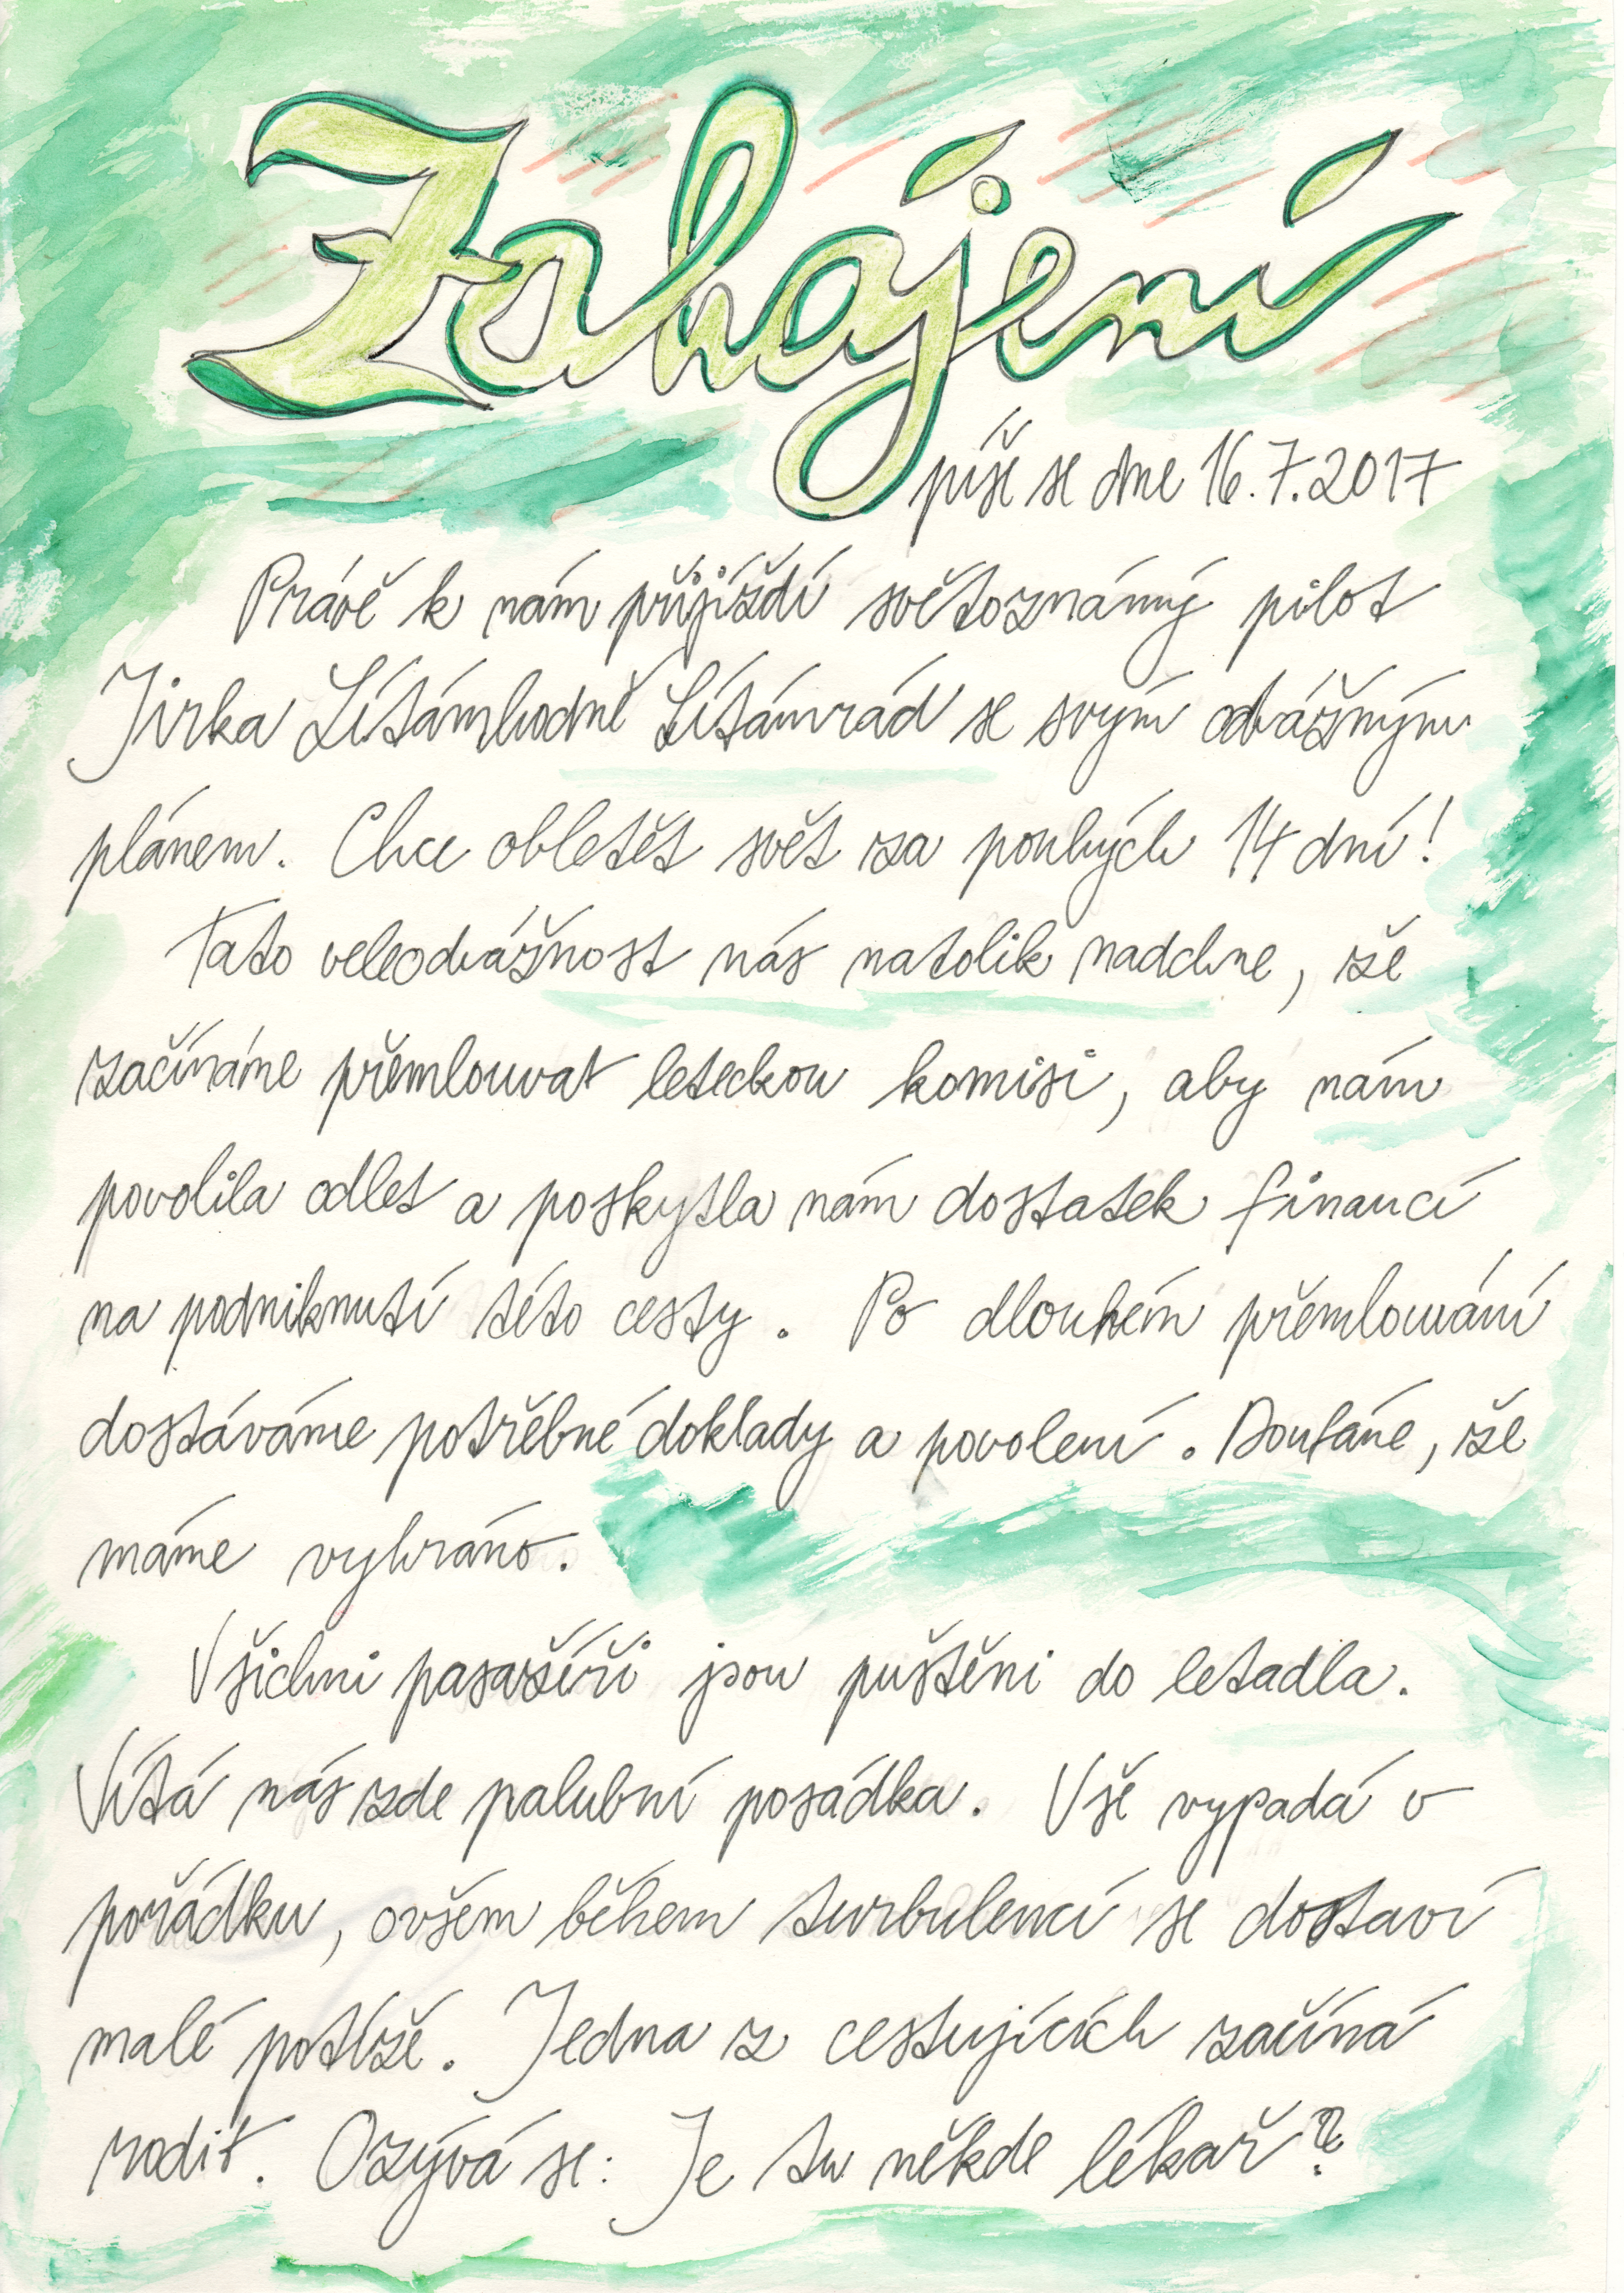 Zahájení
píše se dne 16.7.2017
Právě k nám přijíždí světoznámý pilot
Jirka Lítámhodně Lítámrád se svým odvážným
plánem. Chce obletět svět za pouhých 14 dní!
Tato veleodvážnost nás natolik nadchne, že
začínáme přemlouvat leteckou komisi, aby nám
povolila odlet a poskytla nám dostatek financí
na podniknutí této cesty. Po dlouhém přemlouvání
dostáváme potřebné doklady a povolení. Doufáme, že
máme vyhráno.
Všichni pasažíři jsou puštěni do letadla.
Vítá nás zde palubní posádka. Vše vypadá v
pořádku, ovšem během turbulencí se dostaví
malé potíže. Jedna z cestujících začíná
rodit. Ozývá se: Je tu někde lékař?